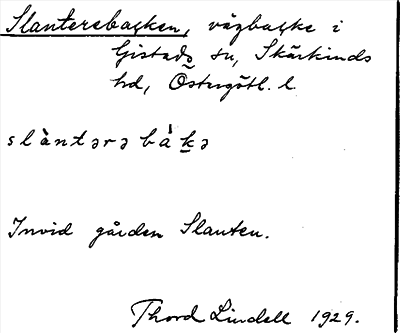 Slanterebacken, vägbacke i
Gistads sn, Skärkinds
hd, Östergötl. l.
slàntərə bàkə
Invid gården Slanten.
Thord Lindell 1929.